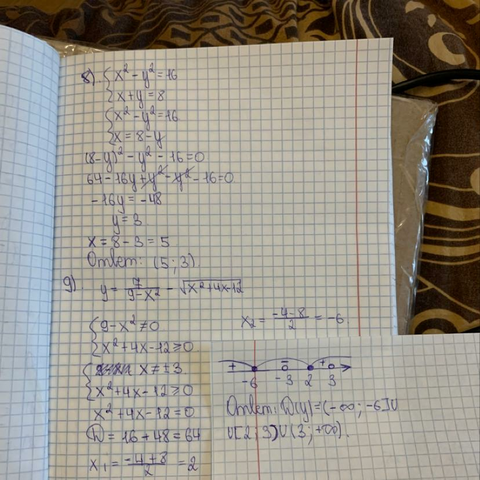 8) { x² - y² = 16
{ x + y = 8
{ x² - y² = 16
{ x = 8 - y
(8-y)² - y² - 16 = 0
64 - 16y + y² - y² - 16 = 0
-16y = -48
y = 3
x = 8 - 3 = 5
Ответ: (5; 3)
9) y = 7/(9-x²) - √(x²+4x-12)
{ 9 - x² ≠ 0
{ x² + 4x - 12 ≥ 0
{ x ≠ ±3
{ x² + 4x - 12 ≥ 0
x² + 4x - 12 = 0
D = 16 + 48 = 64
x₁ = (-4+8)/2 = 2
x₂ = (-4-8)/2 = -6
+ - +
-6 -3 2 3
Ответ: D(y) = (-∞; -6] U
U [2; 3) U (3; +∞).